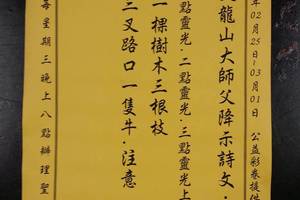 年02月25日~03月01日 公益彩卷提供
龍山大師父降示詩文·
點靈光·二點靈光·三點靈光上
一棵樹木三根枝
二叉路口一隻牛·注意
每星期三晚上八點辦理聖